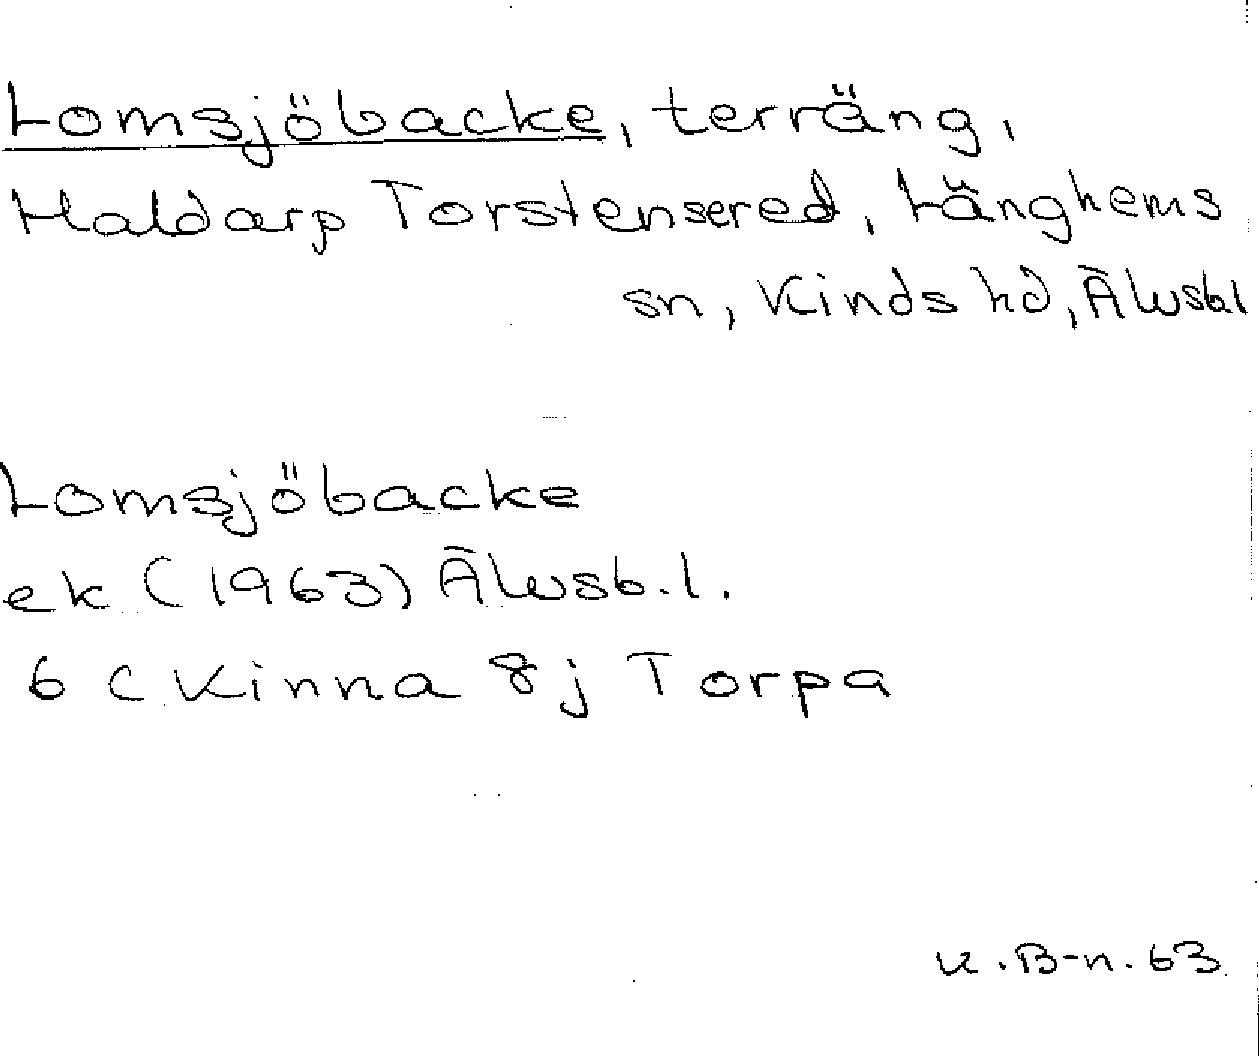 Lomsjöbacke, terräng,
Haldarp Torstensered, Länghems
sn, Kinds hd, Älvsbl
Lomsjöbacke
ek (1963) Älvsb.l.
6 C Kinna 8j Torpa
K.B-n. 63